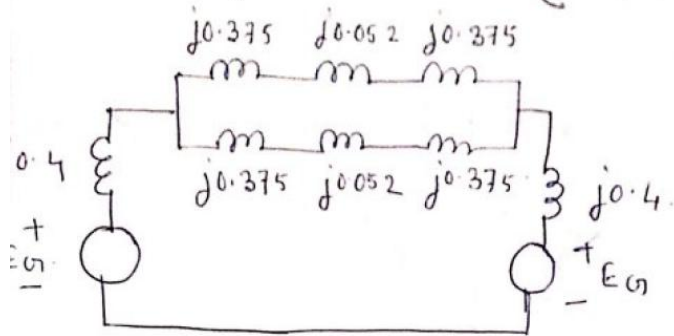 j0.375 j0.052 j0.375
j0.375 j0.052 j0.375
0.4
j0.4
+
EG
-
+
EG
-